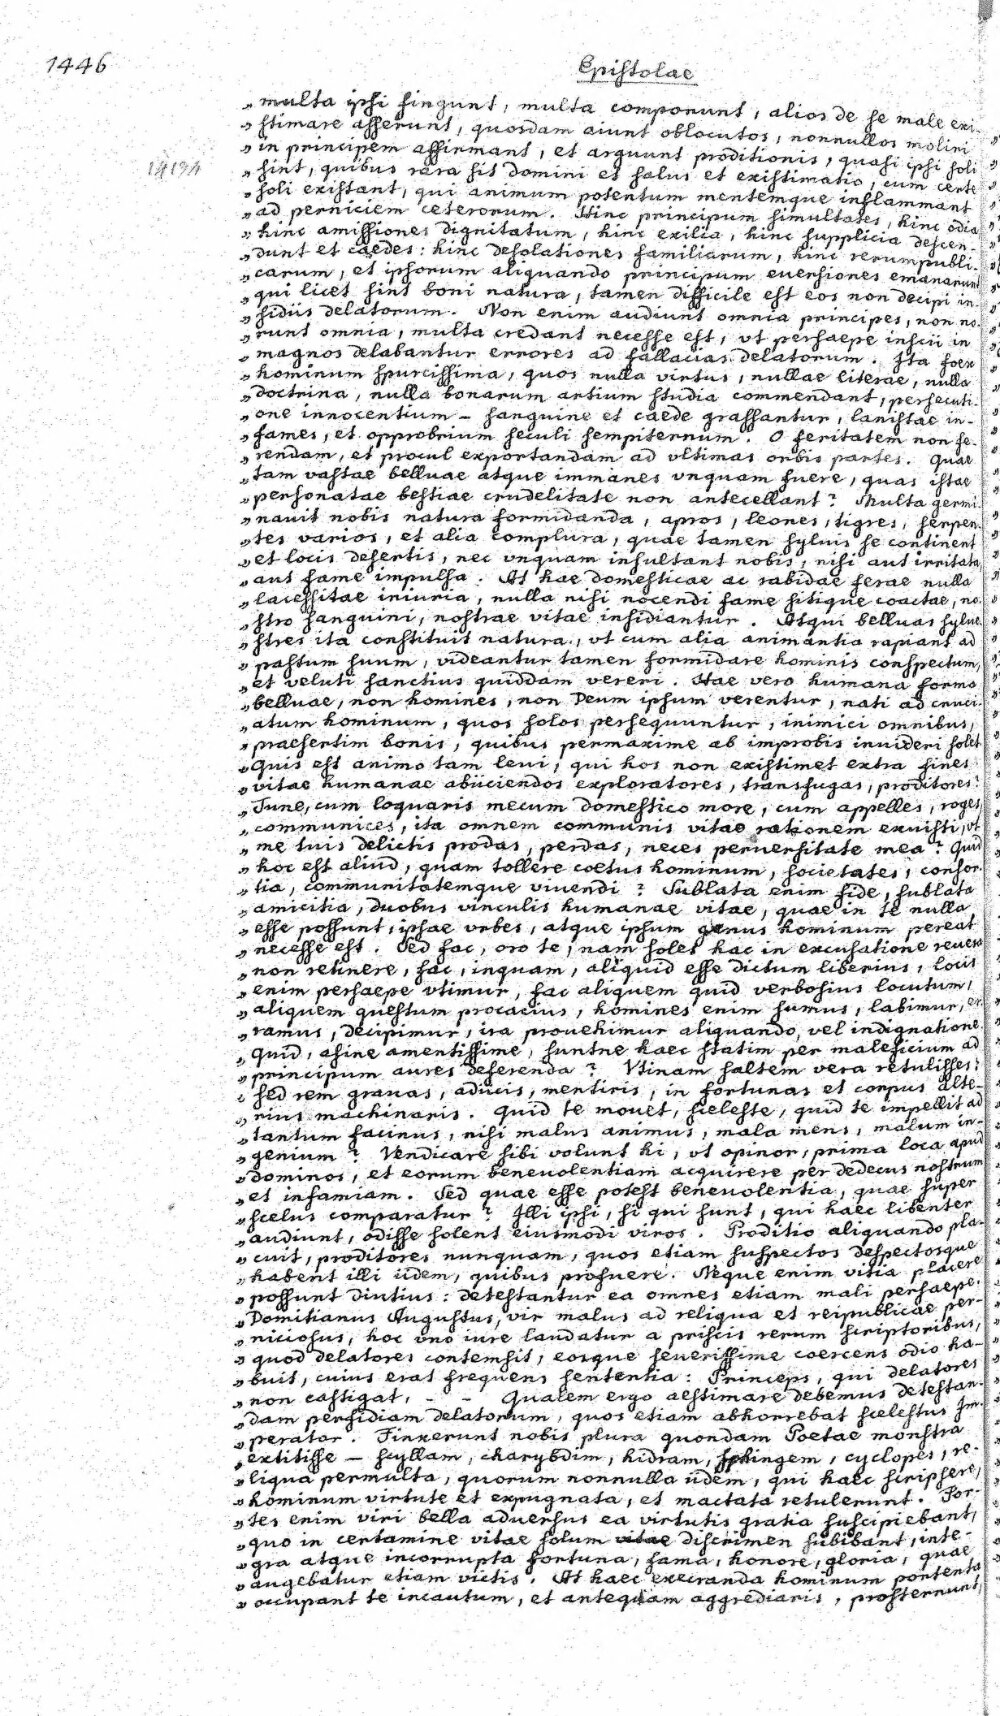 1446
Epistolae
„ multa ipsi fingunt, multa componunt, alios de se male exi-
„ stimare asserunt, quosdam aiunt oblocutos, nonnullos moliri
„ in principem affirmant, et arguunt proditionis, quasi ipsi soli
„ sint, quibus rara sit domini et salus et existimatio, cum certe
„ soli existant, qui animum potentum mentemque inflammant
„ ad perniciem ceterorum. Hinc principum simultates, hinc odia
„ hinc amissiones dignitatum, hinc exilia, hinc supplicia descen-
„ dunt et caedes: hinc desolationes familiarum, hinc rerumpubli-
„ carum, et ipsorum aliquando principum euersiones emanarunt
„ qui licet sint boni natura, tamen difficile est eos non decipi in-
„ sidiis delatorum. Non enim audiunt omnia principes, non no-
„ runt omnia, multa credant necesse est, vt persaepe inscii in
„ magnos delabantur errores ad fallacias delatorum. Ita foex
„ hominum spurcissima, quos nulla virtus, nullae literae, nulla
„ doctrina, nulla bonarum artium studia commendant, persecuti-
„ one innocentium – sanguine et caede grassantur, lanistae in-
„ fames, et opprobrium seculi sempiternum. O feritatem non fe-
„ rendam, et procul exportandam ad vltimas orbis partes. Quae
„ tam vastae belluae atque immanes vnquam fuere, quas istae
„ personatae bestiae crudelitate non antecellant? Multa germi-
„ nauit nobis natura formidanda, apros, leones, tigres, serpen-
„ tes varios, et alia complura, quae tamen syluis se continent
„ et locis desertis, nec vnquam insultant nobis, nisi aut irritata,
„ aut fame impulsa. At hae domesticae ac rabidae ferae nulla
„ lacessitae iniuria, nulla nisi nocendi fame sitique coactae, no-
„ stro sanguini, nostrae vitae insidiantur. Atqui belluas sylue-
„ stres ita constituit natura, vt cum alia animantia rapiant ad
„ pastum suum, videantur tamen formidare hominis conspectum,
„ et veluti sanctius quiddam vereri. Hae vero humana forma
„ belluae, non homines, non Deum ipsum verentur, nati ad cruci-
„ atum hominum, quos solos persequuntur, inimici omnibus,
„ praesertim bonis, quibus permaxime ab improbis inuideri solet
„ Quis est animo tam leui, qui hos non existimet extra fines
„ vitae humanae abiiciendos exploratores, transfugas, proditores?
„ Tune, cum loquaris mecum domestico more, cum appelles, roges,
„ communices, ita omnem communis vitae rationem exuisti, vt
„ me tuis delictis prodas, perdas, neces peruersitate mea? Quid
„ hoc est aliud, quam tollere coetus hominum, societates, consor-
„ tia, communitatemque viuendi? Sublata enim fide, sublata
„ amicitia, duobus vinculis humanae vitae, quae in te nulla
„ esse possunt, ipsae vrbes, atque ipsum genus hominum pereat
„ necesse est. Sed fac, oro te, nam solet hac in excusatione
„ non retinere, fac, inquam, aliquid esse dictum liberius, locis
„ enim persaepe vtimur, fac aliquem quid verbosius locutum,
„ aliquem questum procacius, homines enim sumus, labimur, er-
„ ramus, decipimur, ira prouehimur aliquando, vel indignatione
„ Quid, asine amentissime, suntne haec statim per maleficium ad
„ principum aures deferenda? Vtinam saltem vera retulisses:
„ sed rem grauas, adiicis, mentiris, in fortunas et corpus alte-
„ rius machinaris. Quid te mouet, sceleste, quid te impellit ad
„ tantum facinus, nisi malus animus, mala mens, malum in-
„ genium? Vendicare sibi volunt hi, vt opinor, prima loca apud
„ dominos, et eorum beneuolentiam acquirere per dedecus nostrum
„ et infamiam. Sed quae esse potest beneuolentia, quae super
„ scelus comparatur? Illi ipsi, si qui sunt, qui haec libenter
„ audiunt, odisse solent eiusmodi viros. Proditio aliquando pla-
„ cuit, proditores nunquam, quos etiam suspectos despectosque
„ habent illi iidem, quibus profuere. Neque enim vitia placere
„ possunt diutius: detestantur ea omnes etiam mali persaepe.
„ Domitianus Augustus, vir malus ad reliqua et reipublicae per-
„ niciosus, hoc vno iure laudatur a priscis rerum scriptoribus,
„ quod delatores contemsit, eosque seuerissime coercens odio ha-
„ buit, cuius erat frequens sententia: Princeps, qui delatores
„ non castigat, – – Qualem ergo aestimare debemus detestan-
„ dam perfidiam delatorum, quos etiam abhorrebat scelestus Im-
„ perator. Finxerunt nobis plura quondam Poetae monstra
„ extitisse – scyllam, charybdim, hidram, sphingem, cyclopes, re-
„ liqua permulta, quorum nonnulla iidem, qui haec scripsere,
„ hominum virtute et expugnata, et mactata retulerunt. For-
„ tes enim viri bella aduersus ea virtutis gratia suscipiebant,
„ quo in certamine vitae solum vitae discrimen subibant, inte-
„ gra atque incorrupta fortuna, fama, honore, gloria, quae
„ augebatur etiam victis. At haec execranda hominum portenta
„ occupant te incautum, et antequam aggrediaris, prosternunt,